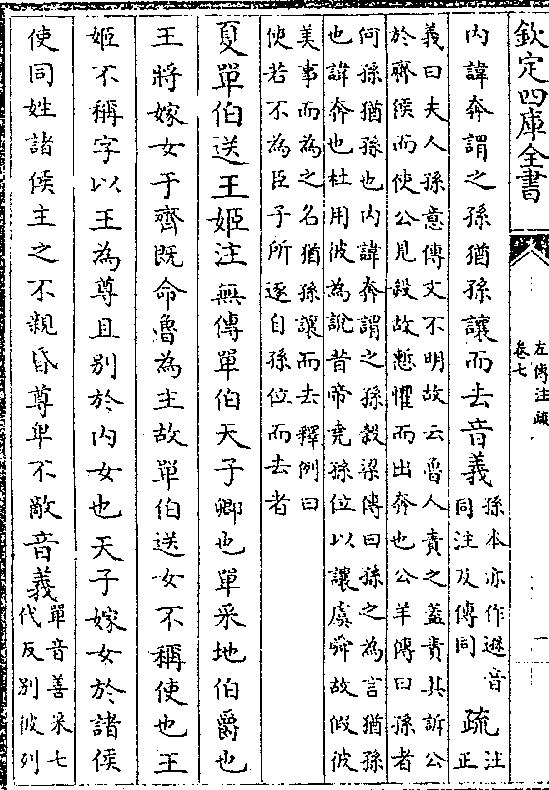 欽定四庫全書
左傳注疏
卷七
一
内諱奔謂之孫猶孫讓而去音義孫本亦作遜音
同注及傳同疏注
正
義曰夫人孫意傳文不明故云魯人責之蓋責其訴公
於齊侯而使公見殺故慙懼而出奔也公羊傳曰孫者
何孫猶孫也内諱奔謂之孫穀梁傳曰孫之為言猶孫
也諱奔也杜用彼為說昔帝堯孫位以讓虞舜故假彼
美事而為之名猶孫讓而去釋例曰
使若不為臣子所逐自孫位而去者
夏單伯送王姬注無傳單伯天子卿也單采地伯爵也
王將嫁女于齊既命魯為主故單伯送女不稱使也王
姬不稱字以王為尊且别於内女也天子嫁女於諸侯
使同姓諸侯主之不親昏尊卑不敵音義單音善采七
代反别彼列